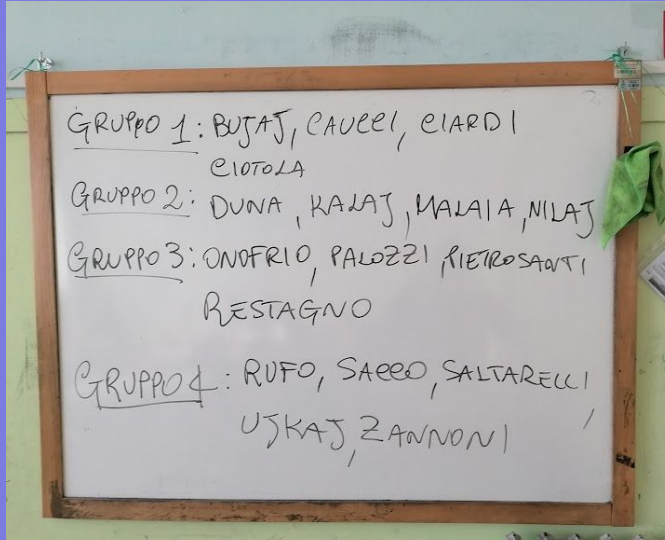 GRUPPO 1: BUJAJ, CAUCCI, CIARDI
CIOTOLA
GRUPPO 2: DUNA, KALAJ, MALAIA, NILAJ
GRUPPO 3: ONOFRIO, PALOZZI, PIETROSANTI
RESTAGNO
GRUPPO 4: RUFO, SACCO, SALTARELLI,
UJKAJ, ZANNONI